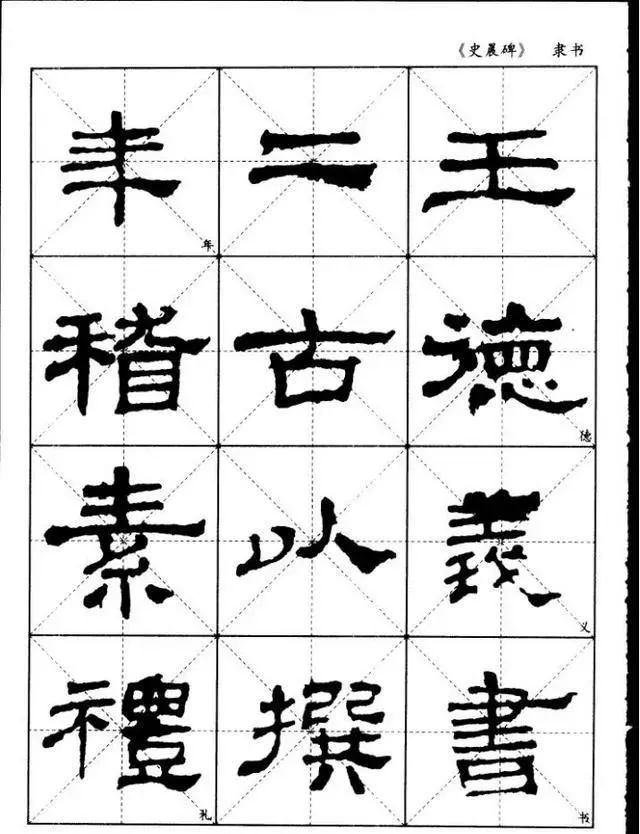 《史晨碑》 隶书
年二王
年
稽古德
德
素以義
义
禮撰書
礼 书